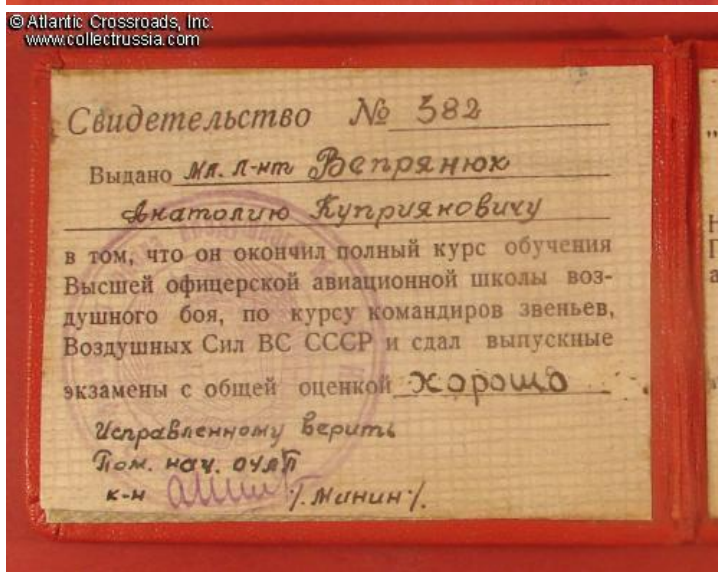 © Atlantic Crossroads, Inc.
www.collectrussia.com
Свидетельство № 582
Выдано Мл. Л-нт Вепрянюк
Анатолию Куприяновичу
в том, что он окончил полный курс обучения
Высшей офицерской авиационной школы воз-
душного боя, по курсу командиров звеньев,
Воздушных Сил ВС СССР и сдал выпускные
экзамены с общей оценкой хорошо
Исправленному верить
Пом. нач.
к-н /.Минин/.